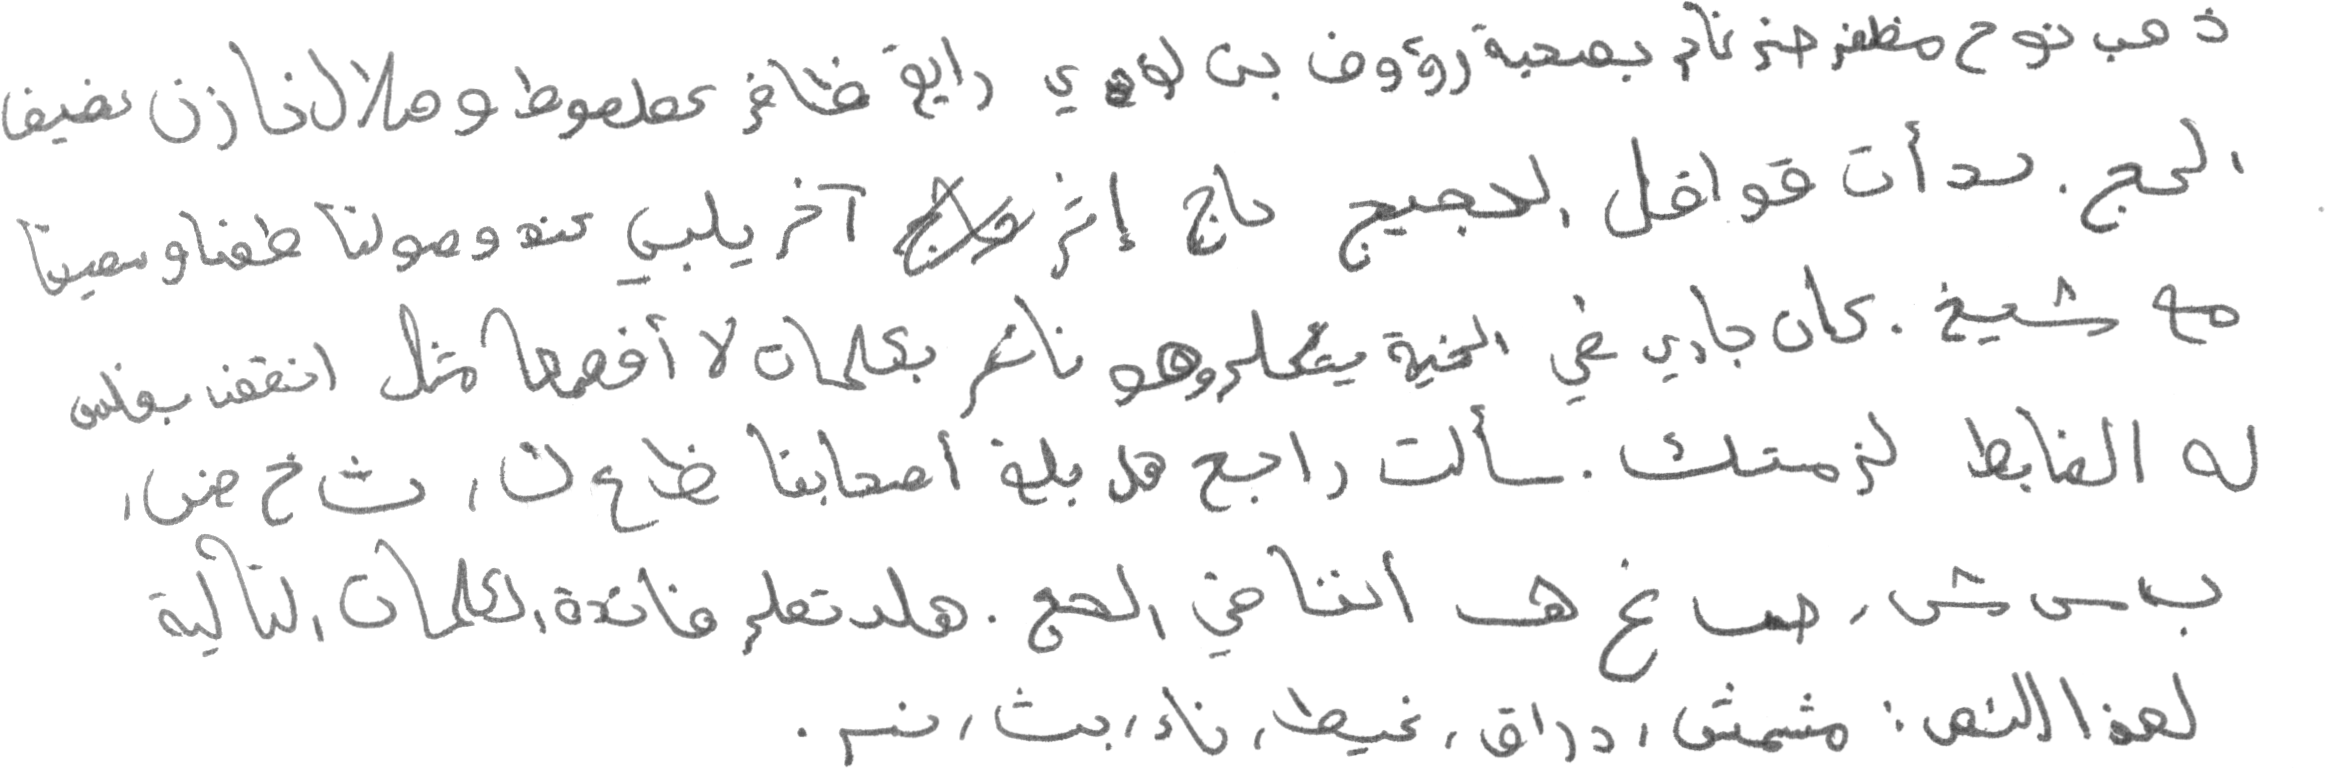 ذهب نوح مظفر حنرنام بصحبة رؤوف بن لؤي رايع ظافر عطعوط و هلال نازن ضيفا
الحج . بدأت قوافل الحجيج حاج إثر آخر يلبي عند وصولنا طفنا و سعينا
مع شيخ . كان جاري في الخيمة يتكلم وهو نائم بكلمات لا أفهمها مثل انتفض بفلس
له الضابط لزمتك . سألت رابح هل بلغ أصحابنا ظ ع ن ، ث خ ض ،
ب س ش ، حصاغ هـ أننا في الحج . هل تعلم فائدة الكلمات التالية
لهذا النص : مشمش ، دراق ، غيط ، ناء ، بث ، نسر .